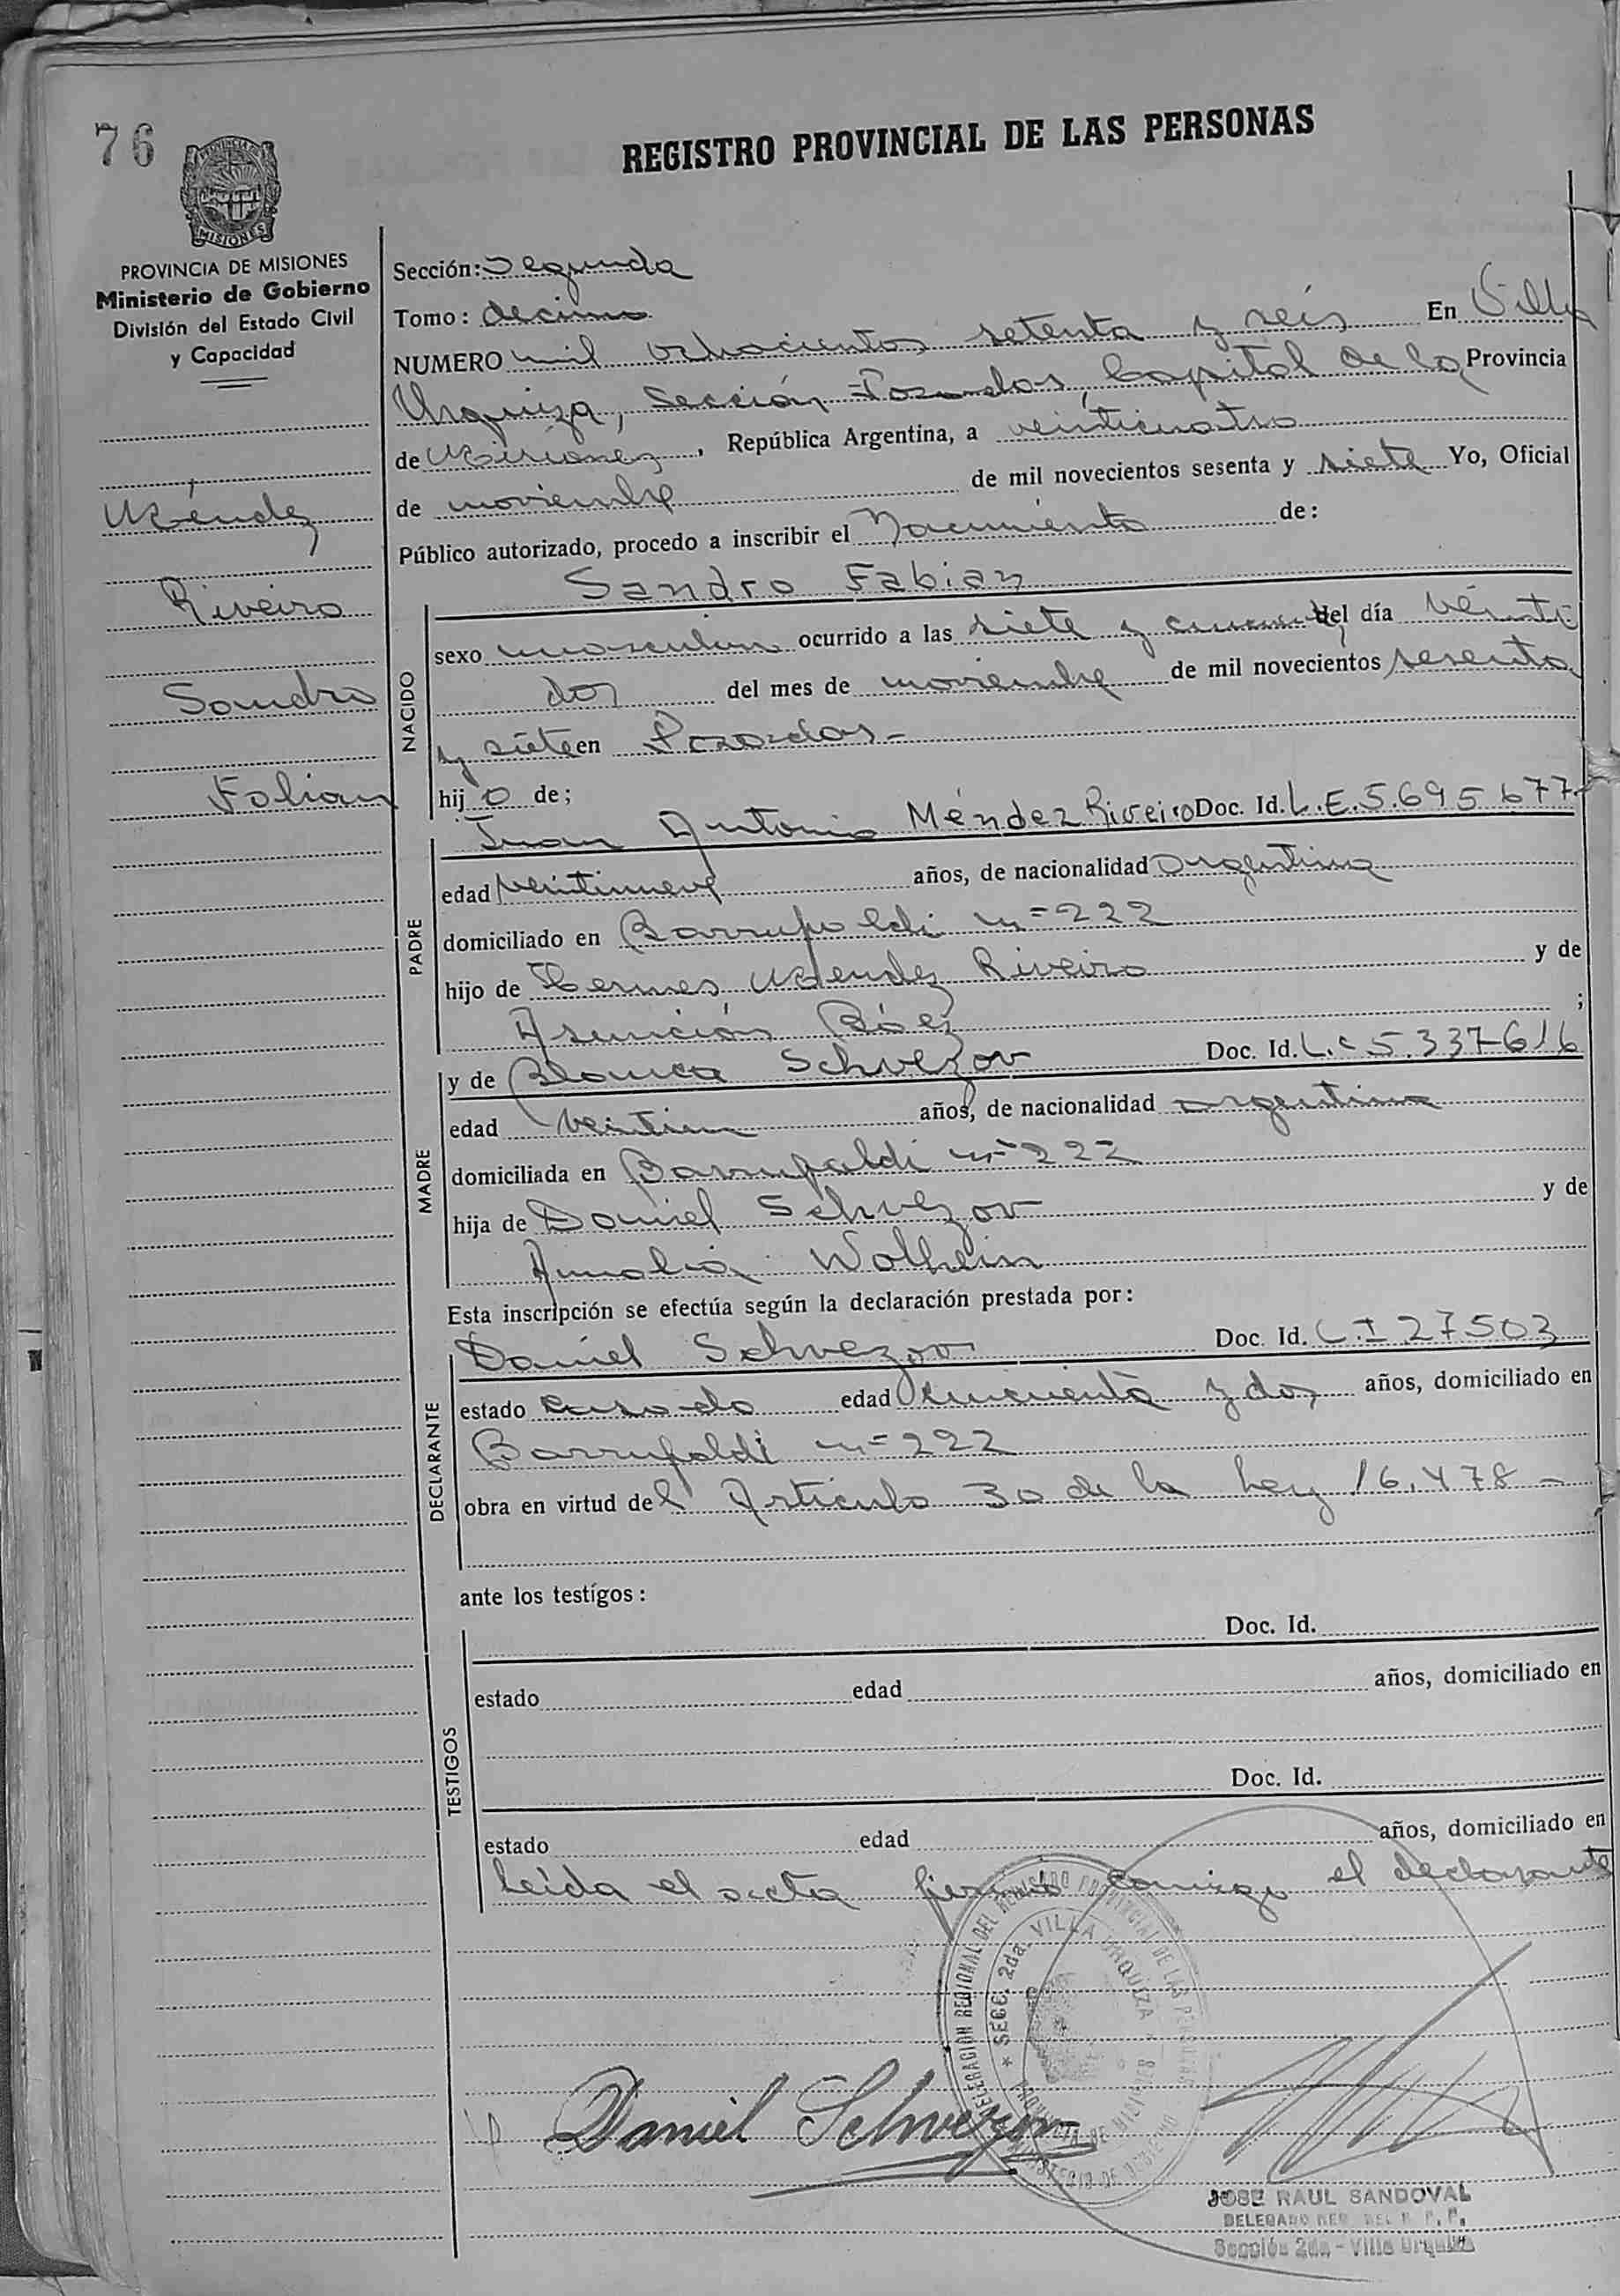 76
REGISTRO PROVINCIAL DE LAS PERSONAS
PROVINCIA DE
MISIONES
PROVINCIA DE MISIONES
Ministerio de Gobierno
División del Estado Civil
y Capacidad
Méndez
Riveiro
Sandro
Fabian
Sección: Segunda
Tomo: decimo
NUMERO mil ochocientos setenta y seis En Villa
Urquiza, Sección Posadas, Capital de la Provincia
de Misiones, República Argentina, a veinticuatro
de noviembre de mil novecientos sesenta y siete Yo, Oficial
Público autorizado, procedo a inscribir el Nacimiento de:
Sandro Fabian
NACIDO
sexo masculino ocurrido a las siete y del día veinti
dos del mes de noviembre de mil novecientos sesenta
y siete en Posadas-
hijo de;
Juan Antonio Méndez Riveiro Doc. Id. L.E. 5.695.677-
PADRE
edad veintinueve años, de nacionalidad argentina
domiciliado en Barrufaldi nº 222
hijo de Hermes Mendez Riveiro y de
Asunción Báez ;
y de Blanca Schvezov Doc. Id. L.C 5.337616
MADRE
edad veintiun años, de nacionalidad argentina
domiciliada en Barrufaldi nº 222
hija de Daniel Schvezov y de
Amalia Wolhein
Esta inscripción se efectúa según la declaración prestada por:
Daniel Schvezov Doc. Id. C.I 27503
DECLARANTE
estado casado edad cincuenta y dos años, domiciliado en
Barrufaldi nº 222
obra en virtud del Artículo 30 de la Ley 16.478-
ante los testígos:
Doc. Id.
TESTIGOS
estado edad años, domiciliado en
Doc. Id.
estado edad años, domiciliado en
Leída el acta firma conmigo el declarante
DELEGACION REGIONAL DEL REGISTRO PROVINCIAL DE LAS PERSONAS
SECC. 2da. VILLA URQUIZA
PROVINCIA DE MISIONES
MINISTERIO DE GOBIERNO
Daniel Schvezov
JOSE RAUL SANDOVAL
DELEGADO REG. DEL R. P. P.
Sección 2da - Villa Urquiza